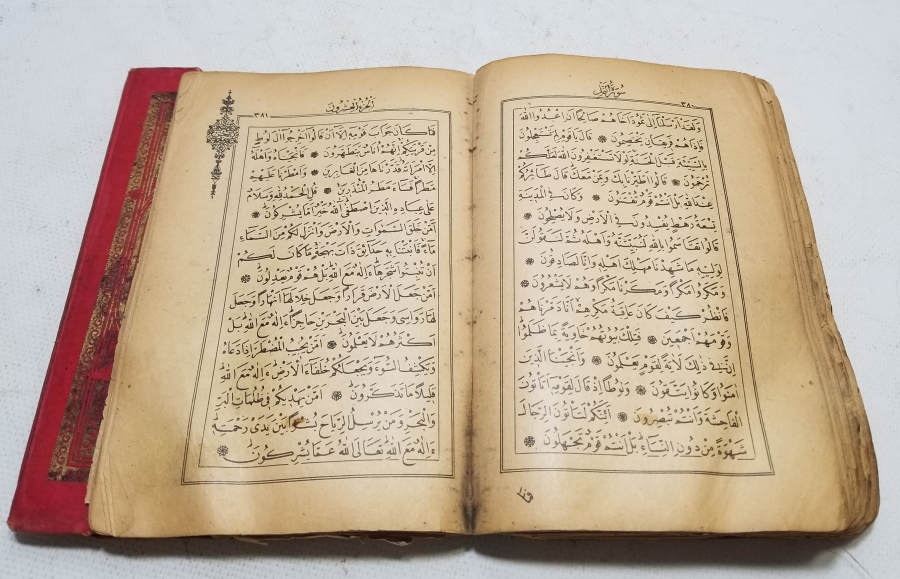 سُورَةُ النَّمْلِ
٣٨٠
وَلَقَدْ اَرْسَلْنَا اِلٰى ثَمُودَ اَخَاهُمْ صَالِحًا اَنِ اعْبُدُوا اللّٰهَ
فَاِذَا هُمْ فَرِيقَانِ يَخْتَصِمُونَ ❋ قَالَ يَا قَوْمِ لِمَ تَسْتَعْجِلُونَ
بِالسَّيِّئَةِ قَبْلَ الْحَسَنَةِ لَوْلَا تَسْتَغْفِرُونَ اللّٰهَ لَعَلَّكُمْ
تُرْحَمُونَ ❋ قَالُوا اطَّيَّرْنَا بِكَ وَبِمَنْ مَعَكَ قَالَ طَائِرُكُمْ
عِنْدَ اللّٰهِ بَلْ اَنْتُمْ قَوْمٌ تُفْتَنُونَ ❋ وَكَانَ فِي الْمَدِينَةِ
تِسْعَةُ رَهْطٍ يُفْسِدُونَ فِي الْاَرْضِ وَلَا يُصْلِحُونَ ❋
قَالُوا تَقَاسَمُوا بِاللّٰهِ لَنُبَيِّتَنَّهُ وَاَهْلَهُ ثُمَّ لَنَقُولَنَّ
لِوَلِيِّهِ مَا شَهِدْنَا مَهْلِكَ اَهْلِهِ وَاِنَّا لَصَادِقُونَ ❋
وَمَكَرُوا مَكْرًا وَمَكَرْنَا مَكْرًا وَهُمْ لَا يَشْعُرُونَ ❋
فَانْظُرْ كَيْفَ كَانَ عَاقِبَةُ مَكْرِهِمْ اَنَّا دَمَّرْنَاهُمْ
وَقَوْمَهُمْ اَجْمَعِينَ ❋ فَتِلْكَ بُيُوتُهُمْ خَاوِيَةً بِمَا ظَلَمُوا
اِنَّ فِي ذٰلِكَ لَاٰيَةً لِقَوْمٍ يَعْلَمُونَ ❋ وَاَنْجَيْنَا الَّذِينَ
اٰمَنُوا وَكَانُوا يَتَّقُونَ ❋ وَلُوطًا اِذْ قَالَ لِقَوْمِهِ اَتَأْتُونَ
الْفَاحِشَةَ وَاَنْتُمْ تُبْصِرُونَ ❋ اَئِنَّكُمْ لَتَأْتُونَ الرِّجَالَ
شَهْوَةً مِنْ دُونِ النِّسَاءِ بَلْ اَنْتُمْ قَوْمٌ تَجْهَلُونَ ❋
فما
اَلْجُزْءُ الْعِشْرُونَ
٣٨١
فَمَا كَانَ جَوَابَ قَوْمِهِ اِلَّا اَنْ قَالُوا اَخْرِجُوا اٰلَ لُوطٍ
مِنْ قَرْيَتِكُمْ اِنَّهُمْ اُنَاسٌ يَتَطَهَّرُونَ ❋ فَاَنْجَيْنَاهُ وَاَهْلَهُ
اِلَّا امْرَاَتَهُ قَدَّرْنَاهَا مِنَ الْغَابِرِينَ ❋ وَاَمْطَرْنَا عَلَيْهِمْ
مَطَرًا فَسَاءَ مَطَرُ الْمُنْذَرِينَ ❋ قُلِ الْحَمْدُ لِلّٰهِ وَسَلَامٌ
عَلٰى عِبَادِهِ الَّذِينَ اصْطَفٰى اٰللّٰهُ خَيْرٌ اَمَّا يُشْرِكُونَ ❋
اَمَّنْ خَلَقَ السَّمٰوَاتِ وَالْاَرْضَ وَاَنْزَلَ لَكُمْ مِنَ السَّمَاءِ
مَاءً فَاَنْبَتْنَا بِهِ حَدَائِقَ ذَاتَ بَهْجَةٍ مَا كَانَ لَكُمْ
اَنْ تُنْبِتُوا شَجَرَهَا ءَاِلٰهٌ مَعَ اللّٰهِ بَلْ هُمْ قَوْمٌ يَعْدِلُونَ ❋
اَمَّنْ جَعَلَ الْاَرْضَ قَرَارًا وَجَعَلَ خِلَالَهَا اَنْهَارًا وَجَعَلَ
لَهَا رَوَاسِيَ وَجَعَلَ بَيْنَ الْبَحْرَيْنِ حَاجِزًا ءَاِلٰهٌ مَعَ اللّٰهِ بَلْ
اَكْثَرُهُمْ لَا يَعْلَمُونَ ❋ اَمَّنْ يُجِيبُ الْمُضْطَرَّ اِذَا دَعَاهُ
وَيَكْشِفُ السُّوءَ وَيَجْعَلُكُمْ خُلَفَاءَ الْاَرْضِ ءَاِلٰهٌ مَعَ اللّٰهِ
قَلِيلًا مَا تَذَكَّرُونَ ❋ اَمَّنْ يَهْدِيكُمْ فِي ظُلُمَاتِ الْبَرِّ
وَالْبَحْرِ وَمَنْ يُرْسِلُ الرِّيَاحَ بُشْرًا بَيْنَ يَدَيْ رَحْمَتِهِ
ءَاِلٰهٌ مَعَ اللّٰهِ تَعَالَى اللّٰهُ عَمَّا يُشْرِكُونَ ❋